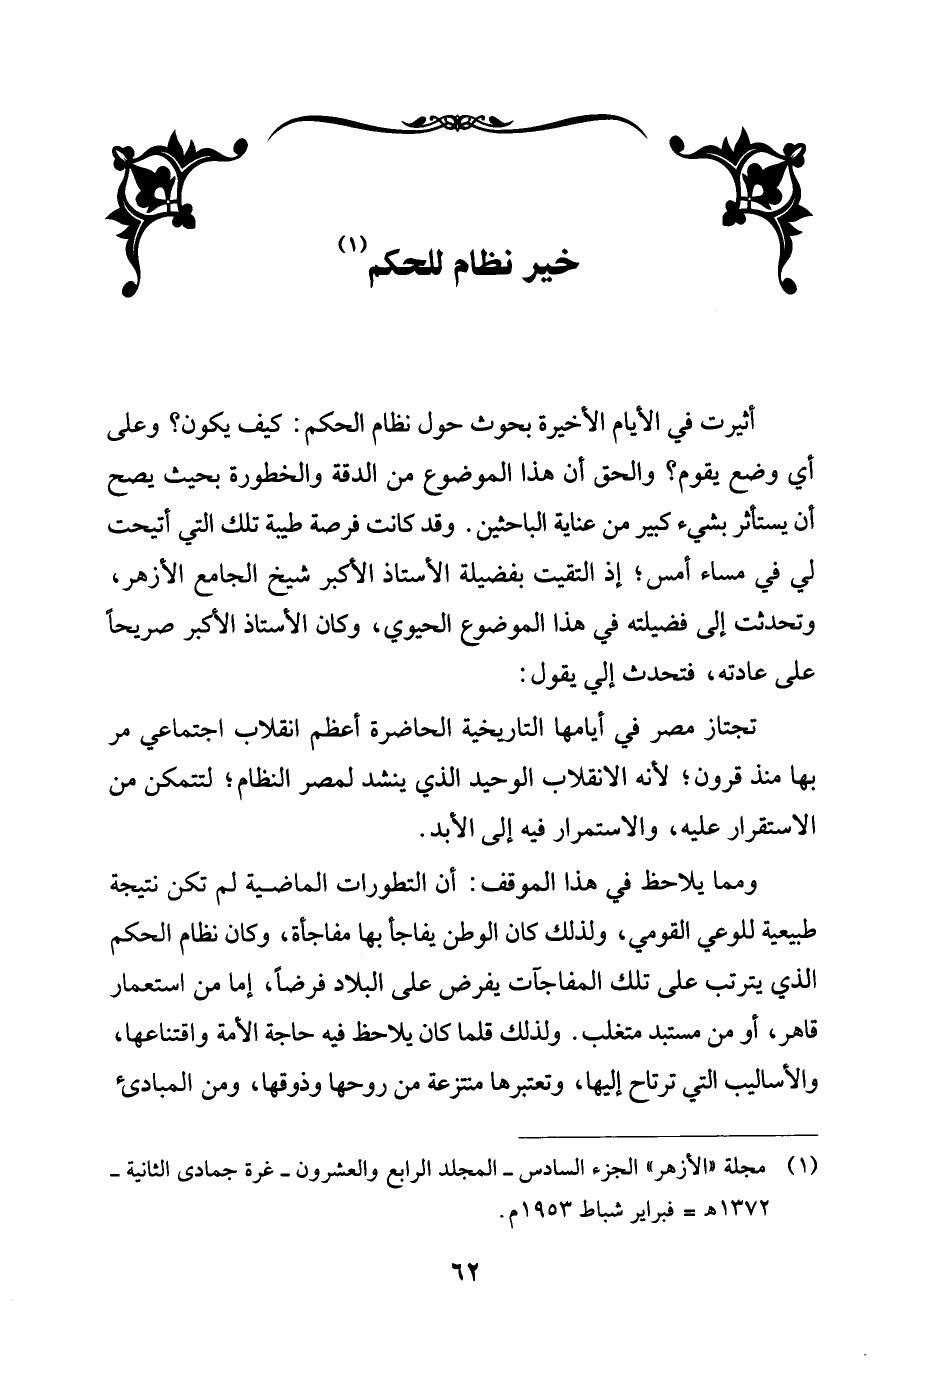 خير نظام للحكم(١)
أثيرت في الأيام الأخيرة بحوث حول نظام الحكم: كيف يكون؟ وعلى
أي وضع يقوم؟ والحق أن هذا الموضوع من الدقة والخطورة بحيث يصح
أن يستأثر بشيء كبير من عناية الباحثين. وقد كانت فرصة طيبة تلك التي أتيحت
لي في مساء أمس؛ إذ التقيت بفضيلة الأستاذ الأكبر شيخ الجامع الأزهر،
وتحدثت إلى فضيلته في هذا الموضوع الحيوي، وكان الأستاذ الأكبر صريحاً
على عادته، فتحدث إلي يقول:
تجتاز مصر في أيامها التاريخية الحاضرة أعظم انقلاب اجتماعي مر
بها منذ قرون؛ لأنه الانقلاب الوحيد الذي ينشد لمصر النظام؛ لتتمكن من
الاستقرار عليه، والاستمرار فيه إلى الأبد.
ومما يلاحظ في هذا الموقف: أن التطورات الماضية لم تكن نتيجة
طبيعية للوعي القومي، ولذلك كان الوطن يفاجأ بها مفاجأة، وكان نظام الحكم
الذي يترتب على تلك المفاجآت يفرض على البلاد فرضاً، إما من استعمار
قاهر، أو من مستبد متغلب. ولذلك قلما كان يلاحظ فيه حاجة الأمة واقتناعها،
والأساليب التي ترتاح إليها، وتعتبرها منتزعة من روحها وذوقها، ومن المبادئ
(١) مجلة «الأزهر» الجزء السادس - المجلد الرابع والعشرون - غرة جمادى الثانية -
١٣٧٢هـ = فبراير شباط ١٩٥٣م.
٦٢